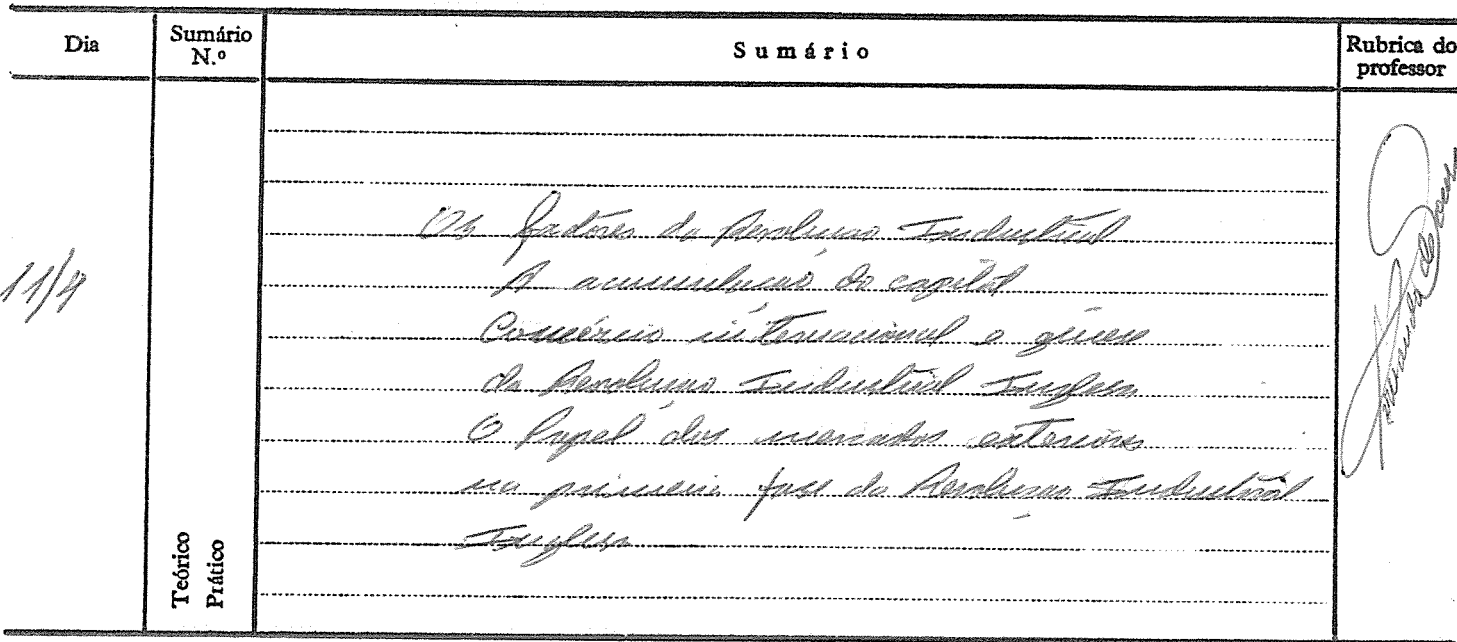 Dia
Sumário
N.º
Sumário
Rubrica do
professor
11/4
Os factores da Revolução Industrial
A acumulação do capital
Comércio internacional e génese
da Revolução Industrial Inglesa
O Papel dos mercados exteriores
na primeira fase da Revolução Industrial
Inglesa
Teórico
Prático